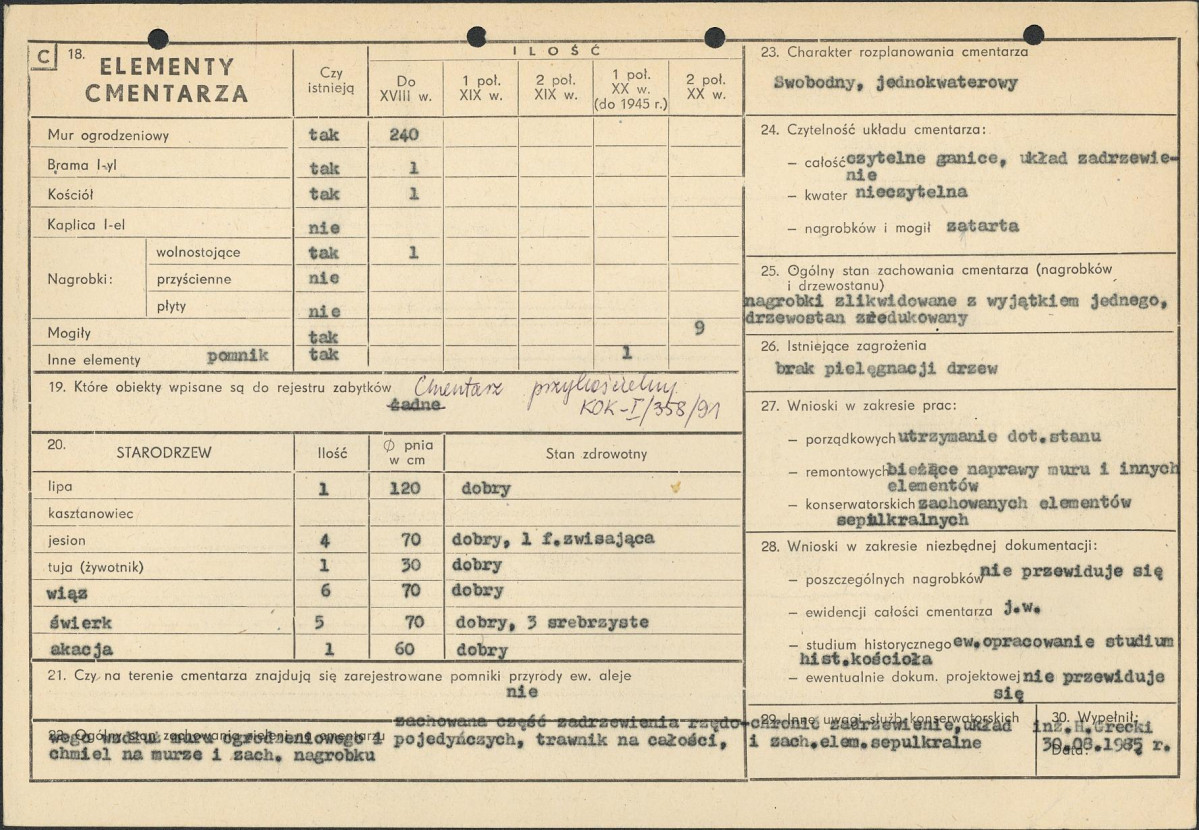 C 18. ELEMENTY CMENTARZA
Czy istnieją
ILOŚĆ
Do XVIII w.
1 poł. XIX w.
2 poł. XIX w.
1 poł. XX w. (do 1945 r.)
2 poł. XX w.
Mur ogrodzeniowy tak 240
Brama I-yl tak 1
Kościół tak 1
Kaplica I-el nie
Nagrobki: wolnostojące tak 1
przyścienne nie
płyty nie
Mogiły tak 9
Inne elementy pomnik tak 1
19. Które obiekty wpisane są do rejestru zabytków Cmentarz przykościelny
żadne KOK-I/358/91
20. STARODRZEW Ilość Ø pnia w cm Stan zdrowotny
lipa 1 120 dobry
kasztanowiec
jesion 4 70 dobry, 1 f.zwisająca
tuja (żywotnik) 1 30 dobry
wiąz 6 70 dobry
świerk 5 70 dobry, 3 srebrzyste
akacja 1 60 dobry
21. Czy na terenie cmentarza znajdują się zarejestrowane pomniki przyrody ew. aleje
nie
22. Ogólny stan zachowania zieleni na cmentarzu
zachowana część zadrzewienia rzędo-
wego wzdłuż muru ogrodzeniowego i pojedyńczych, trawnik na całości,
chmiel na murze i zach. nagrobku
23. Charakter rozplanowania cmentarza
Swobodny, jednokwaterowy
24. Czytelność układu cmentarza:
– całość czytelne ganice, układ zadrzewie-
nie
– kwater nieczytelna
– nagrobków i mogił zatarta
25. Ogólny stan zachowania cmentarza (nagrobków
i drzewostanu)
nagrobki zlikwidowane z wyjątkiem jednego,
drzewostan zredukowany
26. Istniejące zagrożenia
brak pielęgnacji drzew
27. Wnioski w zakresie prac:
– porządkowych utrzymanie dot.stanu
– remontowych bieżące naprawy muru i innych
elementów
– konserwatorskich zachowanych elementów
sepulkralnych
28. Wnioski w zakresie niezbędnej dokumentacji:
– poszczególnych nagrobków nie przewiduje się
– ewidencji całości cmentarza j.w.
– studium historycznego ew.opracowanie studium
hist.kościoła
– ewentualnie dokum. projektowej nie przewiduje
się
29. Inne uwagi służb konserwatorskich
chronić zadrzewienie,układ
i zach.elem.sepulkralne
30. Wypełnił:
inż.H.Grecki
Data: 30.08.1985 r.